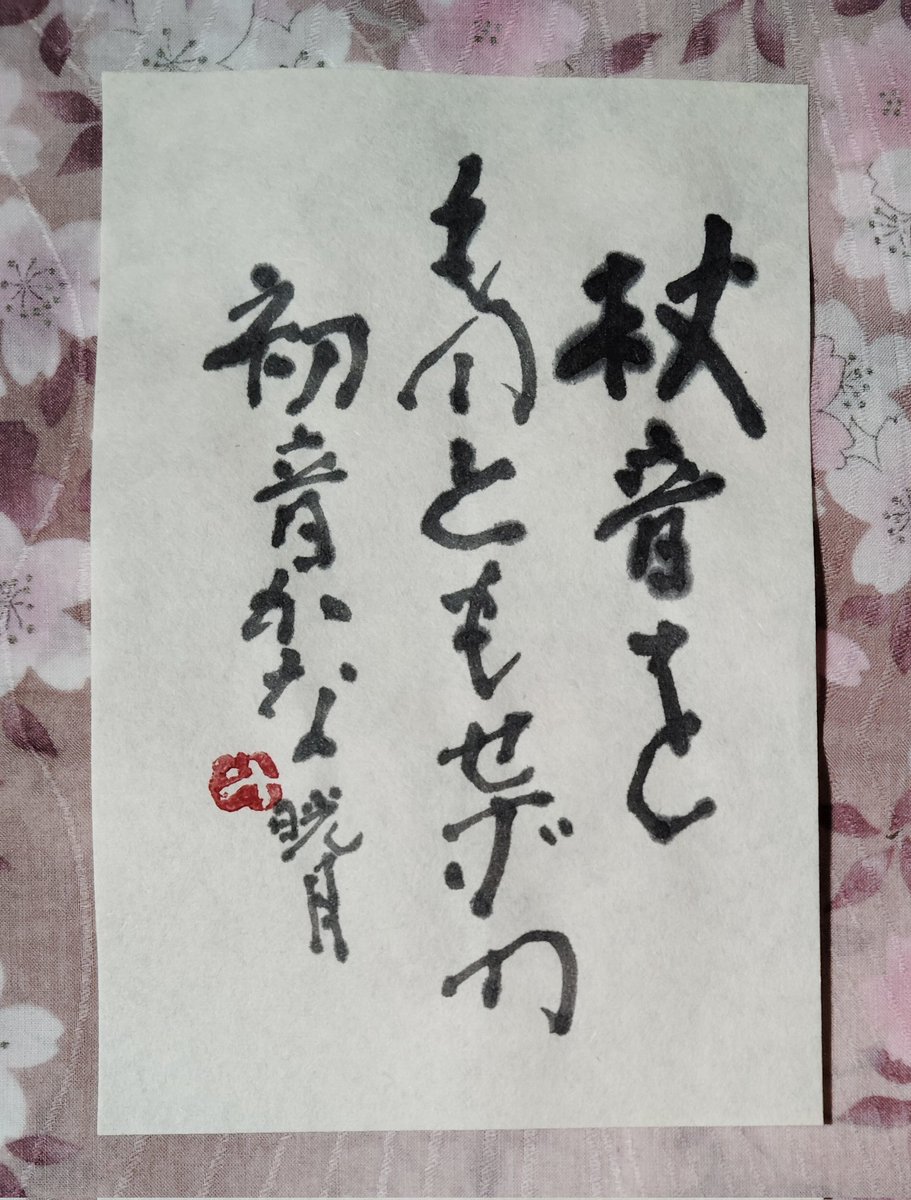 杖音を
ものともせずの
初音かな 晄月